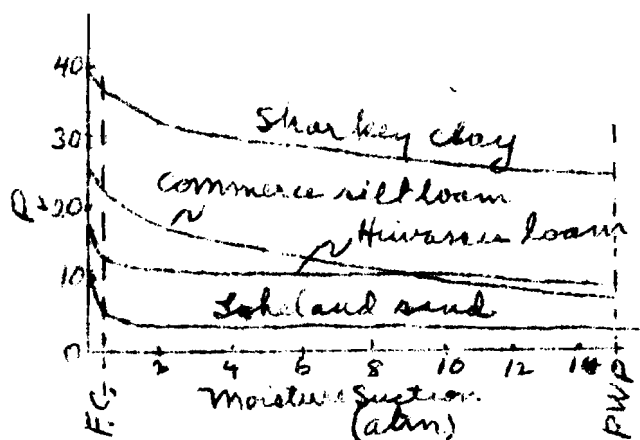 40
30
20
10
0
Sharkey clay
Commerce silt loam
Hiwassee loam
Lakeland sand
2 4 6 8 10 12 14
F.C.
Moisture Suction
(atm)
PWP